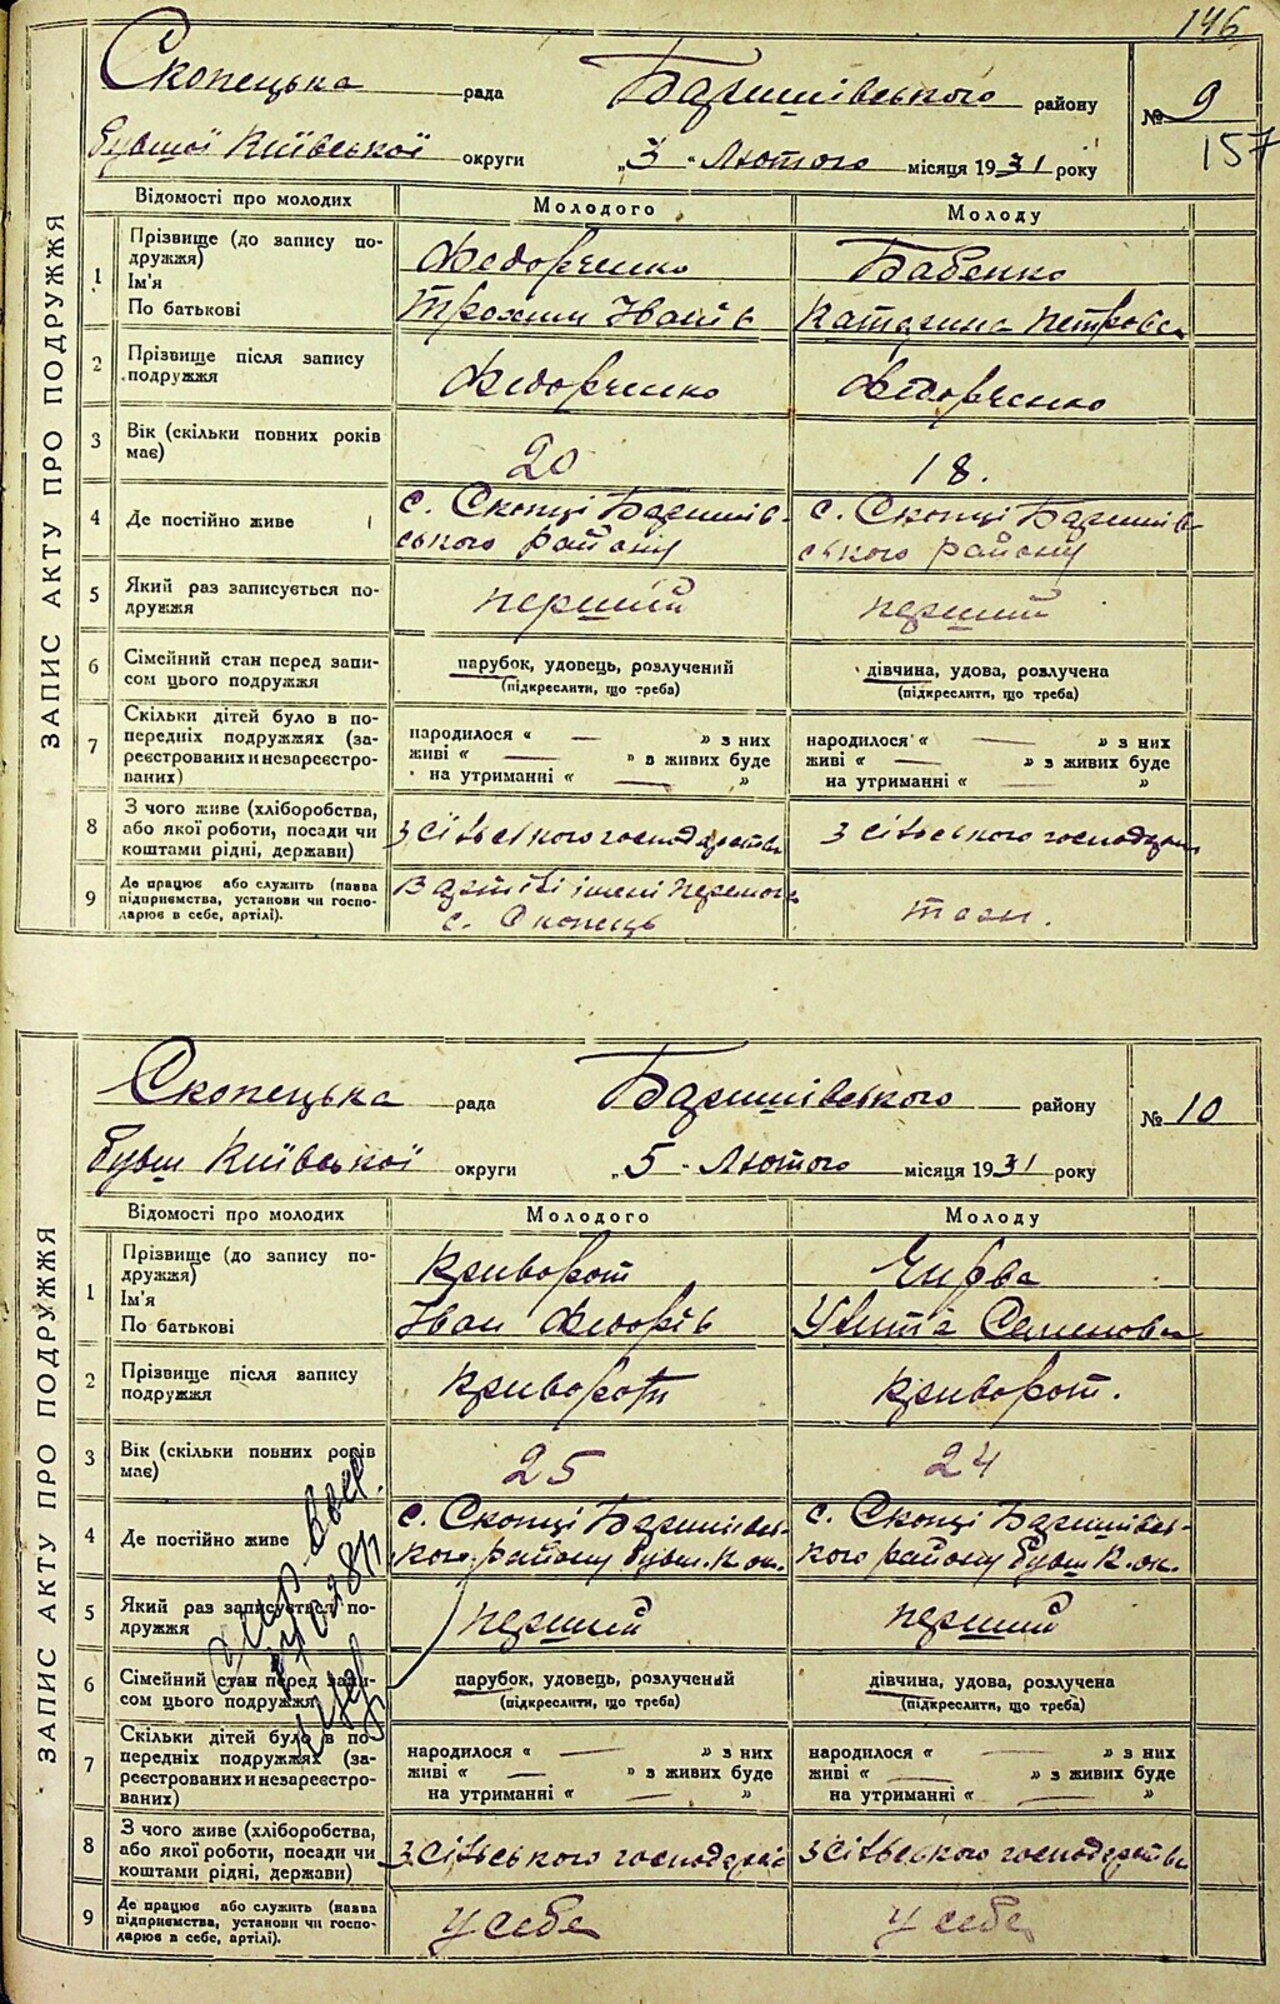 146
Скопецька рада Баришівського району № 9
157
бувшої Київської округи „3“ Лютого місяця 1931 року
ЗАПИС АКТУ ПРО ПОДРУЖЖЯ
Відомості про молодих Молодого Молоду
1 Прізвище (до запису по-
дружжя) Федорченко Бабенко
Ім'я
По батькові Трохим Іванів Катерина Петрова
2 Прізвище після запису
подружжя Федорченко Федорченко
3 Вік (скільки повних років
має) 20 18.
4 Де постійно живе с. Скопці Баришів- с. Скопці Баришів
ського району ського району
5 Який раз записується по-
дружжя перший перший
6 Сімейний стан перед запи- парубок, удовець, розлучений дівчина, удова, розлучена
сом цього подружжя (підкреслити, що треба) (підкреслити, що треба)
7 Скільки дітей було в по- народилося « — » з них народилося « — » з них
передніх подружжях (за- живі « — » в живих буде живі « — » з живих буде
реєстрованих и незареєстро- на утриманні « — » на утриманні « »
ваних)
8 З чого живе (хліборобства,
або якої роботи, посади чи
коштами рідні, держави) з сільського господарства з сільського господарст
9 Де працює або служить (назва
підприємства, установи чи госпо-
дарює в себе, артілі). В артілі імені Перемога
с. Скопець
Скопецька рада Баришівського району № 10
бувш Київської округи „5“ Лютого місяця 1931 року
ЗАПИС АКТУ ПРО ПОДРУЖЖЯ
Відомості про молодих Молодого Молоду
1 Прізвище (до запису по-
дружжя) Криворот Чирва
Ім'я
По батькові Іван Федорів Улита Семенова
2 Прізвище після запису
подружжя Криворот Криворот.
3 Вік (скільки повних років
має) 25 24
4 Де постійно живе с. Скопці Баришівсь- с. Скопці Баришівсь-
кого району бувш. К. ок. кого району бувш К. ок.
5 Який раз записується по-
дружжя перший перший
6 Сімейний стан перед запи- парубок, удовець, розлучений дівчина, удова, розлучена
сом цього подружжя (підкреслити, що треба) (підкреслити, що треба)
7 Скільки дітей було в по- народилося « — » з них народилося « — » з них
передніх подружжях (за- живі « — » з живих буде живі « — » з живих буде
реєстрованих и незареєстро- на утриманні « — » на утриманні « — »
ваних)
8 З чого живе (хліборобства,
або якої роботи, посади чи
коштами рідні, держави) з сільського господарс з сільського господарства
9 Де працює або служить (назва
підприємства, установи чи госпо-
дарює в себе, артілі). у себе у себе